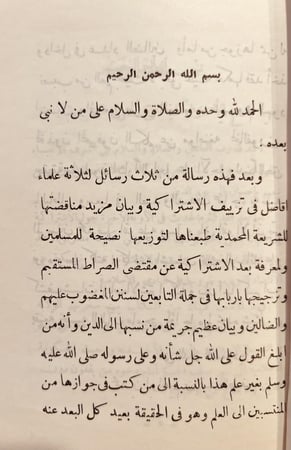 بسم الله الرحمن الرحيم
الحمد لله وحده والصلاة والسلام على من لا نبى
بعده :
وبعد فهذه رسالة من ثلاث رسائل لثلاثة علماء
افاضل فى تزييف الاشتراكية وبيان مزيد مناقضتها
للشريعة المحمدية طبعناها لتوزيعها نصيحة للمسلمين
ولمعرفة بعد الاشتراكية عن مقتضى الصراط المستقيم
وترجيحها باربابها فى جملة التابعين لسنن المغضوب عليهم
والضالين وبيان عظيم جريمة من نسبها الى الدين وأنه من
ابلغ القول على الله جل شأنه وعلى رسوله صلى الله عليه
وسلم بغير علم هذا بالنسبة الى من كتب فى جوازها من
المنتسبين الى العلم وهو فى الحقيقة بعيد كل البعد عنه